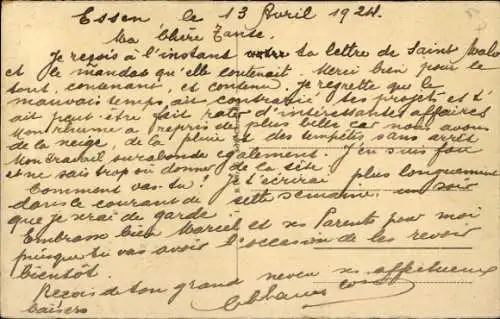 Essen, le 13 Avril 1924.
Ma Chère Tante.
Je reçois à l'instant ta lettre de Saint Malo
et le mandat qu'elle contenait. Merci bien pour le
tout, contenant, et contenu. Je regrette que le
mauvais temps, ait contrarié tes projets et t'
ait peut-être fait rater d'intéressantes affaires
Mon rhume a repris de plus belle car nous avons
de la neige, de la pluie et des tempêtes sans arrêt
Mon travail surabonde également. J'en suis fou
et ne sais trop où donner de la tête.
Comment vas-tu? Je t'écrirai plus longuement
dans le courant de cette semaine. un soir
que je serai de garde.
Embrasse bien Marcel et ses Parents pour moi
puisque tu vas avoir l'occasion de les revoir
bientôt.
Reçois de ton grand neveu ses affectueux
baisers